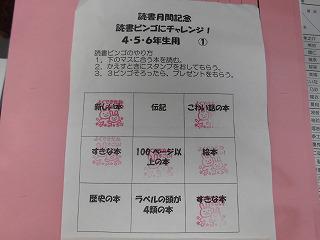 読書月間記念
読書ビンゴにチャレンジ！
4・5・6年生用　①
読書ビンゴのやり方
1、下のマスに合う本を読む。
2、かえすときにスタンプをおしてもらう。
3、3ビンゴそろったら、プレゼントをもらう。
新しい本　伝記　こわい話の本
すきな本　100ページ以上の本　絵本
歴史の本　ラベルの頭が4類の本　すきな本